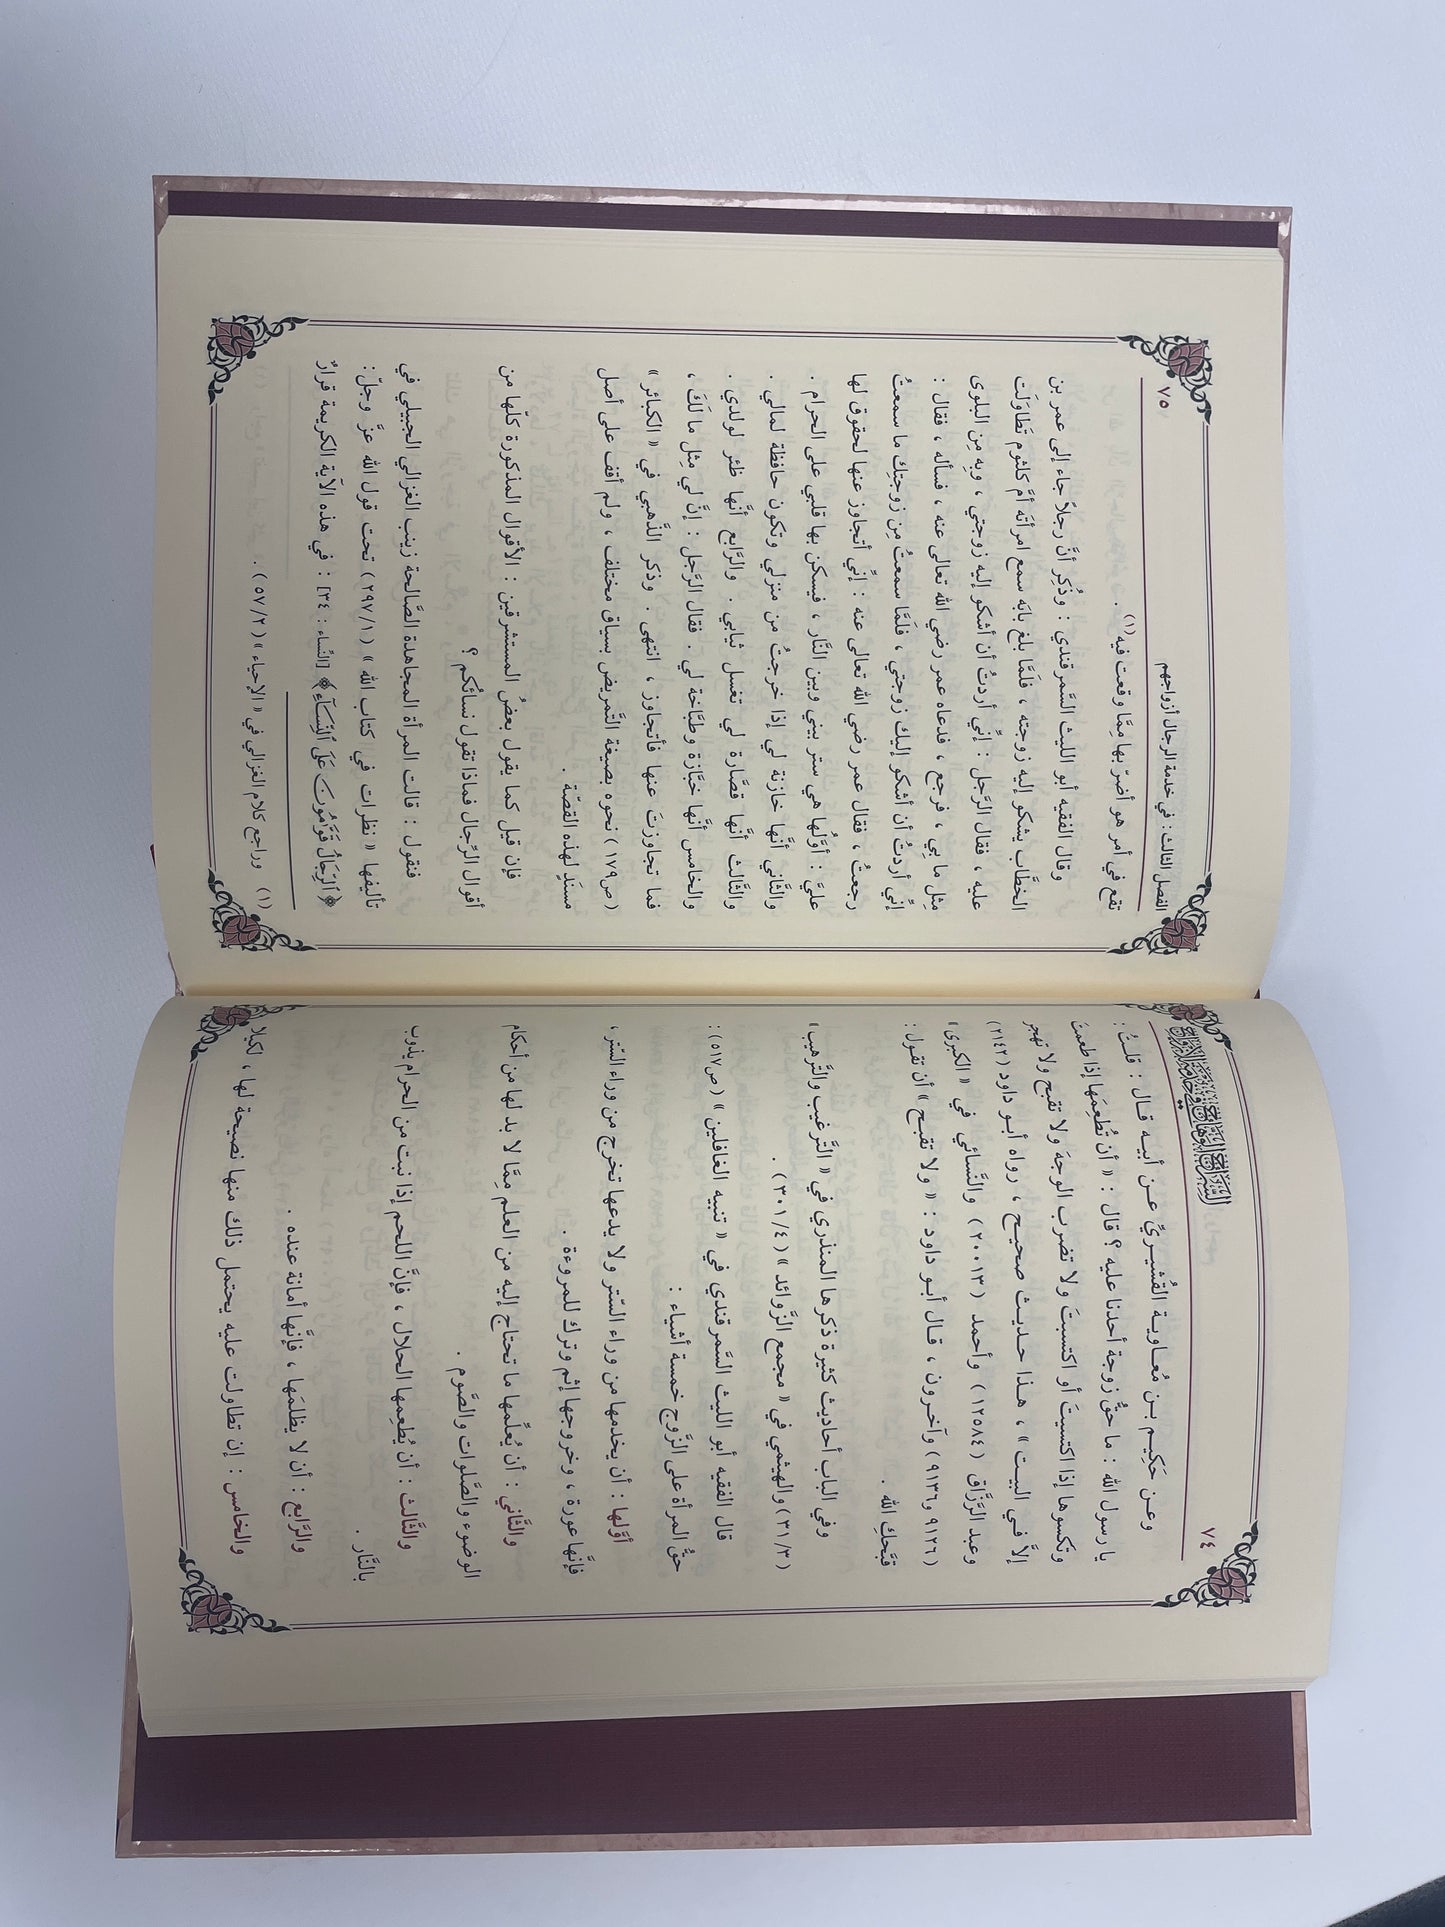 ٧٤
وعـن حَكِيـم بـن مُعـاويـة القُشيـريِّ عـن أبيـه قـال : قلـتُ :
يا رسول الله : ما حقُّ زوجة أحدنا عليه ؟ قال : « أن تُطعِمَها إذا طعمتَ
وتكسوها إذا اكتسيتَ أو اكتسبتَ ولا تضرب الوجهَ ولا تقبح ولا تهجر
إلاَّ فـي البيـت » ، هـذا حـديـث صحيـح ، رواه أبـو داود ( ٢١٤٢ )
وعبد الرَّزَّاق ( ١٢٥٨٤ ) وأحمد ( ٢٠٠١٣ ) والنَّسائي في « الكبرى »
( ٩١٢٦ و٩١٣٦ ) وآخـرون ، قـال أبـو داود : « ولا تقبـح » أن تقـول :
قبَّحكِ الله .
وفي الباب أحاديث كثيرة ذكرها المنذري في « التَّرغيب والتَّرهيب »
( ٣١/٣ ) والهيثمي في « مجمع الزَّوائد » ( ٣٠١/٤ ) .
قال الفقيه أبو الليث السَّمرقندي في « تنبيه الغافلين » ( ص٥١٧ ) :
حقُّ المرأة على الزَّوج خمسة أشياء :
أوَّلها : أن يخدمها من وراء السّتر ولا يدعها تخرج من وراء السّتر ،
فإنَّها عورة ، وخروجها إثم وترك للمروءة .
والثَّاني : أن يُعلِّمها ما تحتاج إليه من العلم مِمَّا لا بد لها من أحكام
الوضوء والصَّلوات والصَّوم .
والثَّالث : أن يُطعِمها الحلال ، فإنَّ اللحم إذا نبت من الحرام يذوب
بالنَّار .
والرَّابع : أن لا يظلمَها ، فإنَّها أمانة عنده .
والخامس : إن تطاولت عليه يحتمل ذلك منها نصيحة لها ، لكيلا
الفصل الثالث: في خدمة الرجال أزواجهم
٧٥
تقع في أمر هو أضرّ بها مِمَّا وقعت فيه(١) .
وقال الفقيه أبو الليث السَّمرقندي : وذُكِر أنَّ رجلاً جاء إلى عمر بن
الخطَّاب يشكو إليه زوجته ، فلَمَّا بلغ بابَه سمع امرأته أمَّ كلثوم تَطاوَلَت
عليه ، فقال الرَّجل : إنِّي أردتُ أن أشكو إليه زوجتي ، وبِهِ مِن البلوى
مِثل ما بِي ، فرجع ، فدعاه عمر رضي الله تعالى عنه ، فسأله ، فقال :
إنِّي أردتُ أن أشكو إليك زوجتي ، فلَمَّا سمعتُ مِن زوجتِك ما سمعتُ
رجعتُ ، فقال عمر رضي الله تعالى عنه : إنِّي أتجاوز عنها لحقوق لها
عليَّ : أوَّلُها هي ستر بيني وبين النَّار ، فيسكن بها قلبي على الحرام .
والثَّاني أنَّها خازنة لي إذا خرجتُ من منزلي وتكون حافظة لمالي .
والثَّالث أنَّها قصَّارة لي تغسل ثيابي . والرَّابع أنَّها ظئر لولدي .
والخامس أنَّها خبَّازة وطبَّاخة لي . فقال الرَّجل : إنَّ لي مِثل ما لَكَ ،
فما تجاوزتَ عنها فأتجاوز ، انتهى . وذكر الذَّهبي في « الكبائر »
( ص١٧٩ ) نحوه بصيغة التَّمريض بسياق مختلف ، ولم أقف على أصل
مسنَدٍ لهذه القصّة .
فإن قيل كما يقول بعضُ المستشرقين : الأقوال المذكورة كلّها من
أقوال الرِّجال فماذا تقول نسائُكم ؟
فنقول : قالت المرأة المجاهدة الصَّالحة زينب الغزالي الجبيلي في
تأليفها « نظرات في كتاب الله » ( ٢٩٧/١ ) تحت قول الله عزَّ وجلّ :
﴿ ٱلرِّجَالُ قَوَّٰمُونَ عَلَى ٱلنِّسَآءِ﴾ [النَّساء : ٣٤] : في هذه الآية الكريمة قرارٌ
(١) وراجع كلام الغزالي في « الإحياء » ( ٥٧/٢ ) .